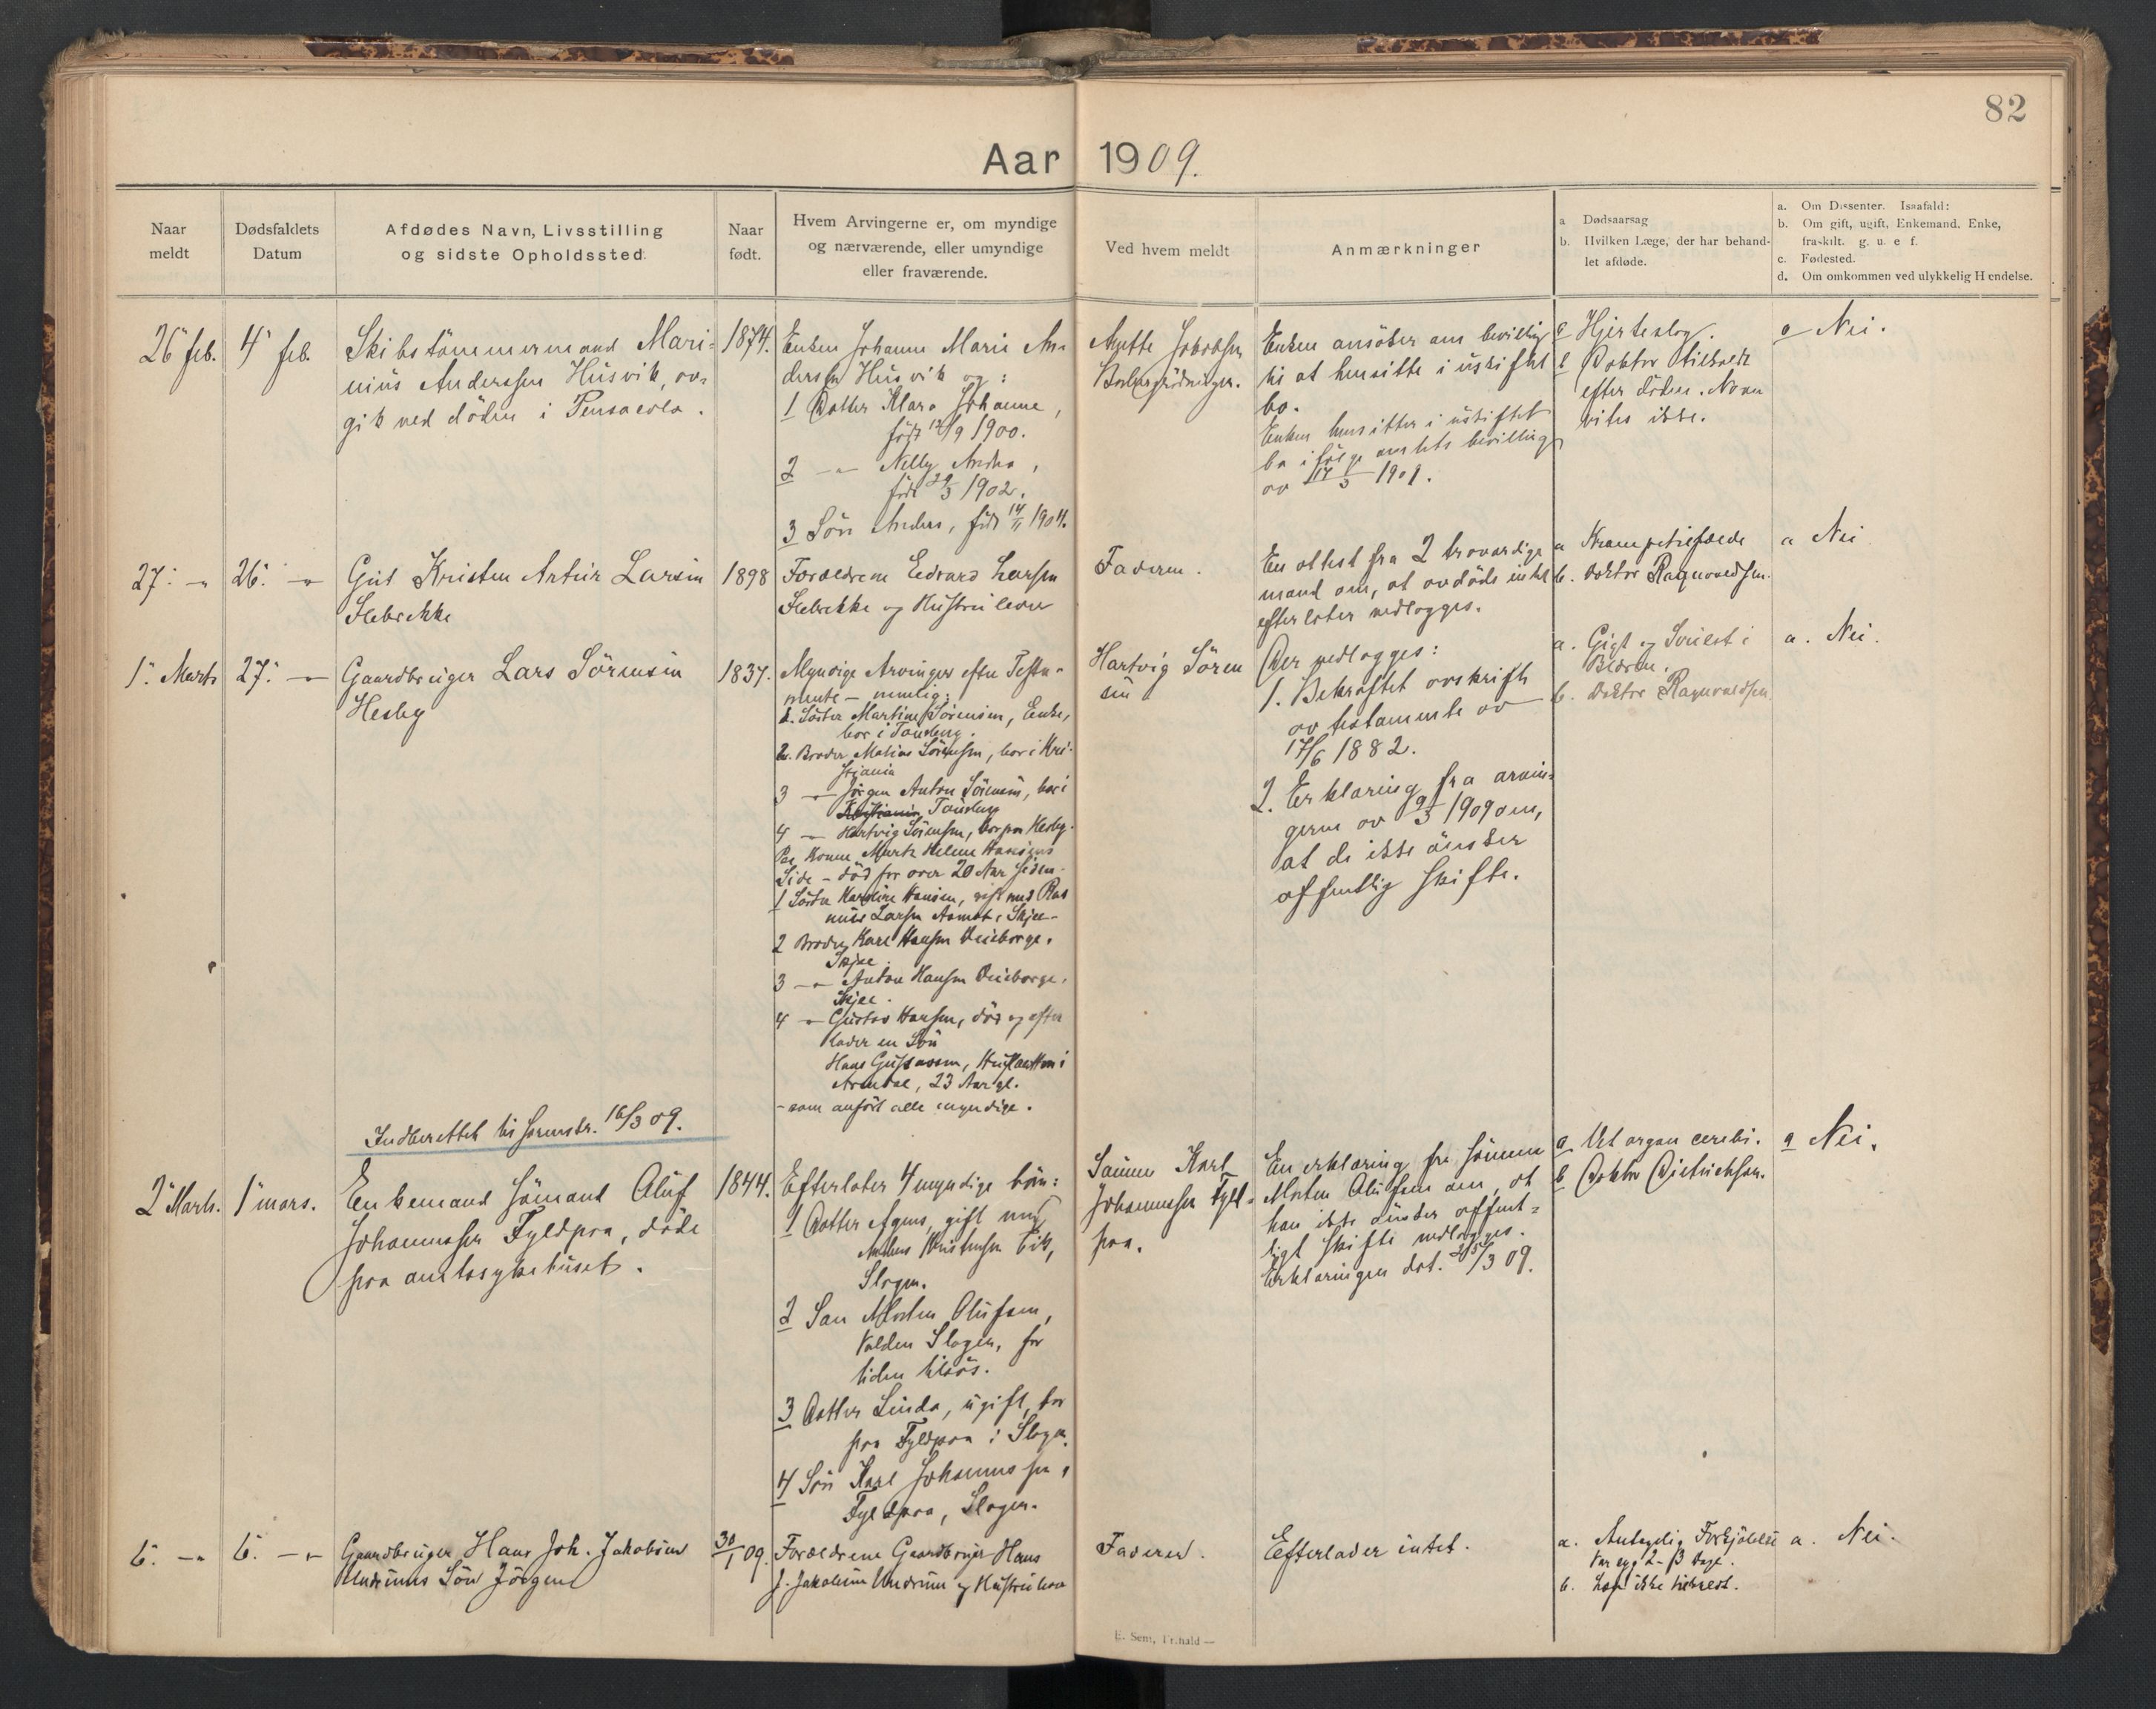 82
Aar 1909.
Naar
meldt
Dødsfaldets
Datum
Afdødes Navn, Livsstilling
og sidste Opholdssted.
Naar
født.
Hvem Arvingerne er, om myndige
og nærværende, eller umyndige
eller fraværende.
Ved hvem meldt
Anmærkninger
a Dødsaarsag
b. Hvilken Læge, der har behand-
let afdøde.
a. Om Dissenter. Isaafald:
b. Om gift, ugift, Enkemand, Enke,
fraskilt. g. u. e f.
c. Fødested.
d. Om omkommen ved ulykkelig Hændelse.
26 feb.
4 feb.
Skibstømmermand Mari-
nius Anderssen Husvik, av-
gik ved døden i Pensacola.
1874.
Enken Johanne Marie An-
derssen Husvik og:
1 Datter Klara Johanne,
født 12/9 1900.
2 —"— Nelly Andrea,
født 29/3 1902.
3 Søn Anders, født 14/11 1904.
Mette Jakobsen
Enken ansøker om bevilling
til at hensitte i uskiftet
bo.
Enken hensitter i uskiftet
bo ifølge amtets bevilling
av 17/3 1909.
a Hjerteslag.
b Doktor tilkaldt
efter døden. Navn
vites ikke.
a Nei.
27. —"
26. —"
Gut Kristen Artur Larsen
Slebrekke
1898
Forældrene Edvard Larsen
Slebrekke og Hustru lever
Faderen.
En attest fra 2 troværdige
mænd om, at avdøde intet
efterlater vedlægges.
a
b. Doktor Ragnvaldsen.
a Nei
1. Marts
27. —"
Gaardbruger Lars Sörensen
Hesby
1837.
Myndige Arvinger efter Testa-
mente - nemlig:
1. Söster Martine Sörensen, Enke,
bor i Tönsberg.
2. Broder Matias Sörensen, bor i Kri-
stjania
3 —"— Jörgen Anton Sörensen, bor i
Kristiania Tönsberg
4 —"— Hartvig Sörensen, bor paa Hesby.
Paa Konen Marte Helene Hansens
Side - död for over 20 Aar siden -
1 Söster Karoline Hansen, gift med Ras
mus Larsen Aamot i Skjee-
2 Broder Karl Hansen Veieborge.
Skjee.
3 —"— Anton Hansen Veieborge.
Skjee.
4 —"— Gustav Hansen, död og efter
lader en Sön
Hans Gustavsen, i
Arendal, 23 Aar gl.
- som anfört alle myndige.
Hartvig Sören
sen
Der vedlægges:
1. Bekræftet avskrift
av testamente av
17/6 1882.
2. Erklæring fra arvin-
gerne av 9/3 1909 om,
at de ikke ønsker
offentlig skifte.
a. Gigt og Svulst i
Blæren.
b. Doktor Ragnvaldsen
a. Nei.
Indberettet til Sorenskr. 16/3 09.
2 Marts.
1 mars.
Enkemand sømand Oluf
Johannessen Fyldpaa, døde
paa amtssykehuset.
1844.
Efterlater 4 myndige børn:
1 Datter Agnes, gift med
Kristensen Eik,
Slagen.
2 Søn Morten Olufsen,
Valden Slagen, for
tiden tilsjøs.
3 Datter Linda, ugift, bor
paa Fyldpaa i Slagen.
4 Søn Karl Johannessen,
Fyldpaa, Slagen.
Sønnen Karl
Johannessen Fyld-
paa.
En erklæring fra sønnen
Morten Olufsen om, at
han ikke ønsker offent-
ligt skifte vedlægges.
Erklæringen dat. 25/3 09.
a Vit. organ cerebri.
b Doktor Dietrichson.
a Nei.
6. —"
6. —"
Gaardbruger Hans Joh. Jakobsen
Undrums Sön Jörgen
30/1 09.
Forældrene Gaardbruger Hans
J. Jakobsen Undrum og Hustru lever
Faderen.
Efterlader intet.
a. Antagelig Forkjölelse
Var syg 2-3 Dage.
b. Læge ikke tilkaldt.
a. Nei.
E. Sem, Fr.hald —